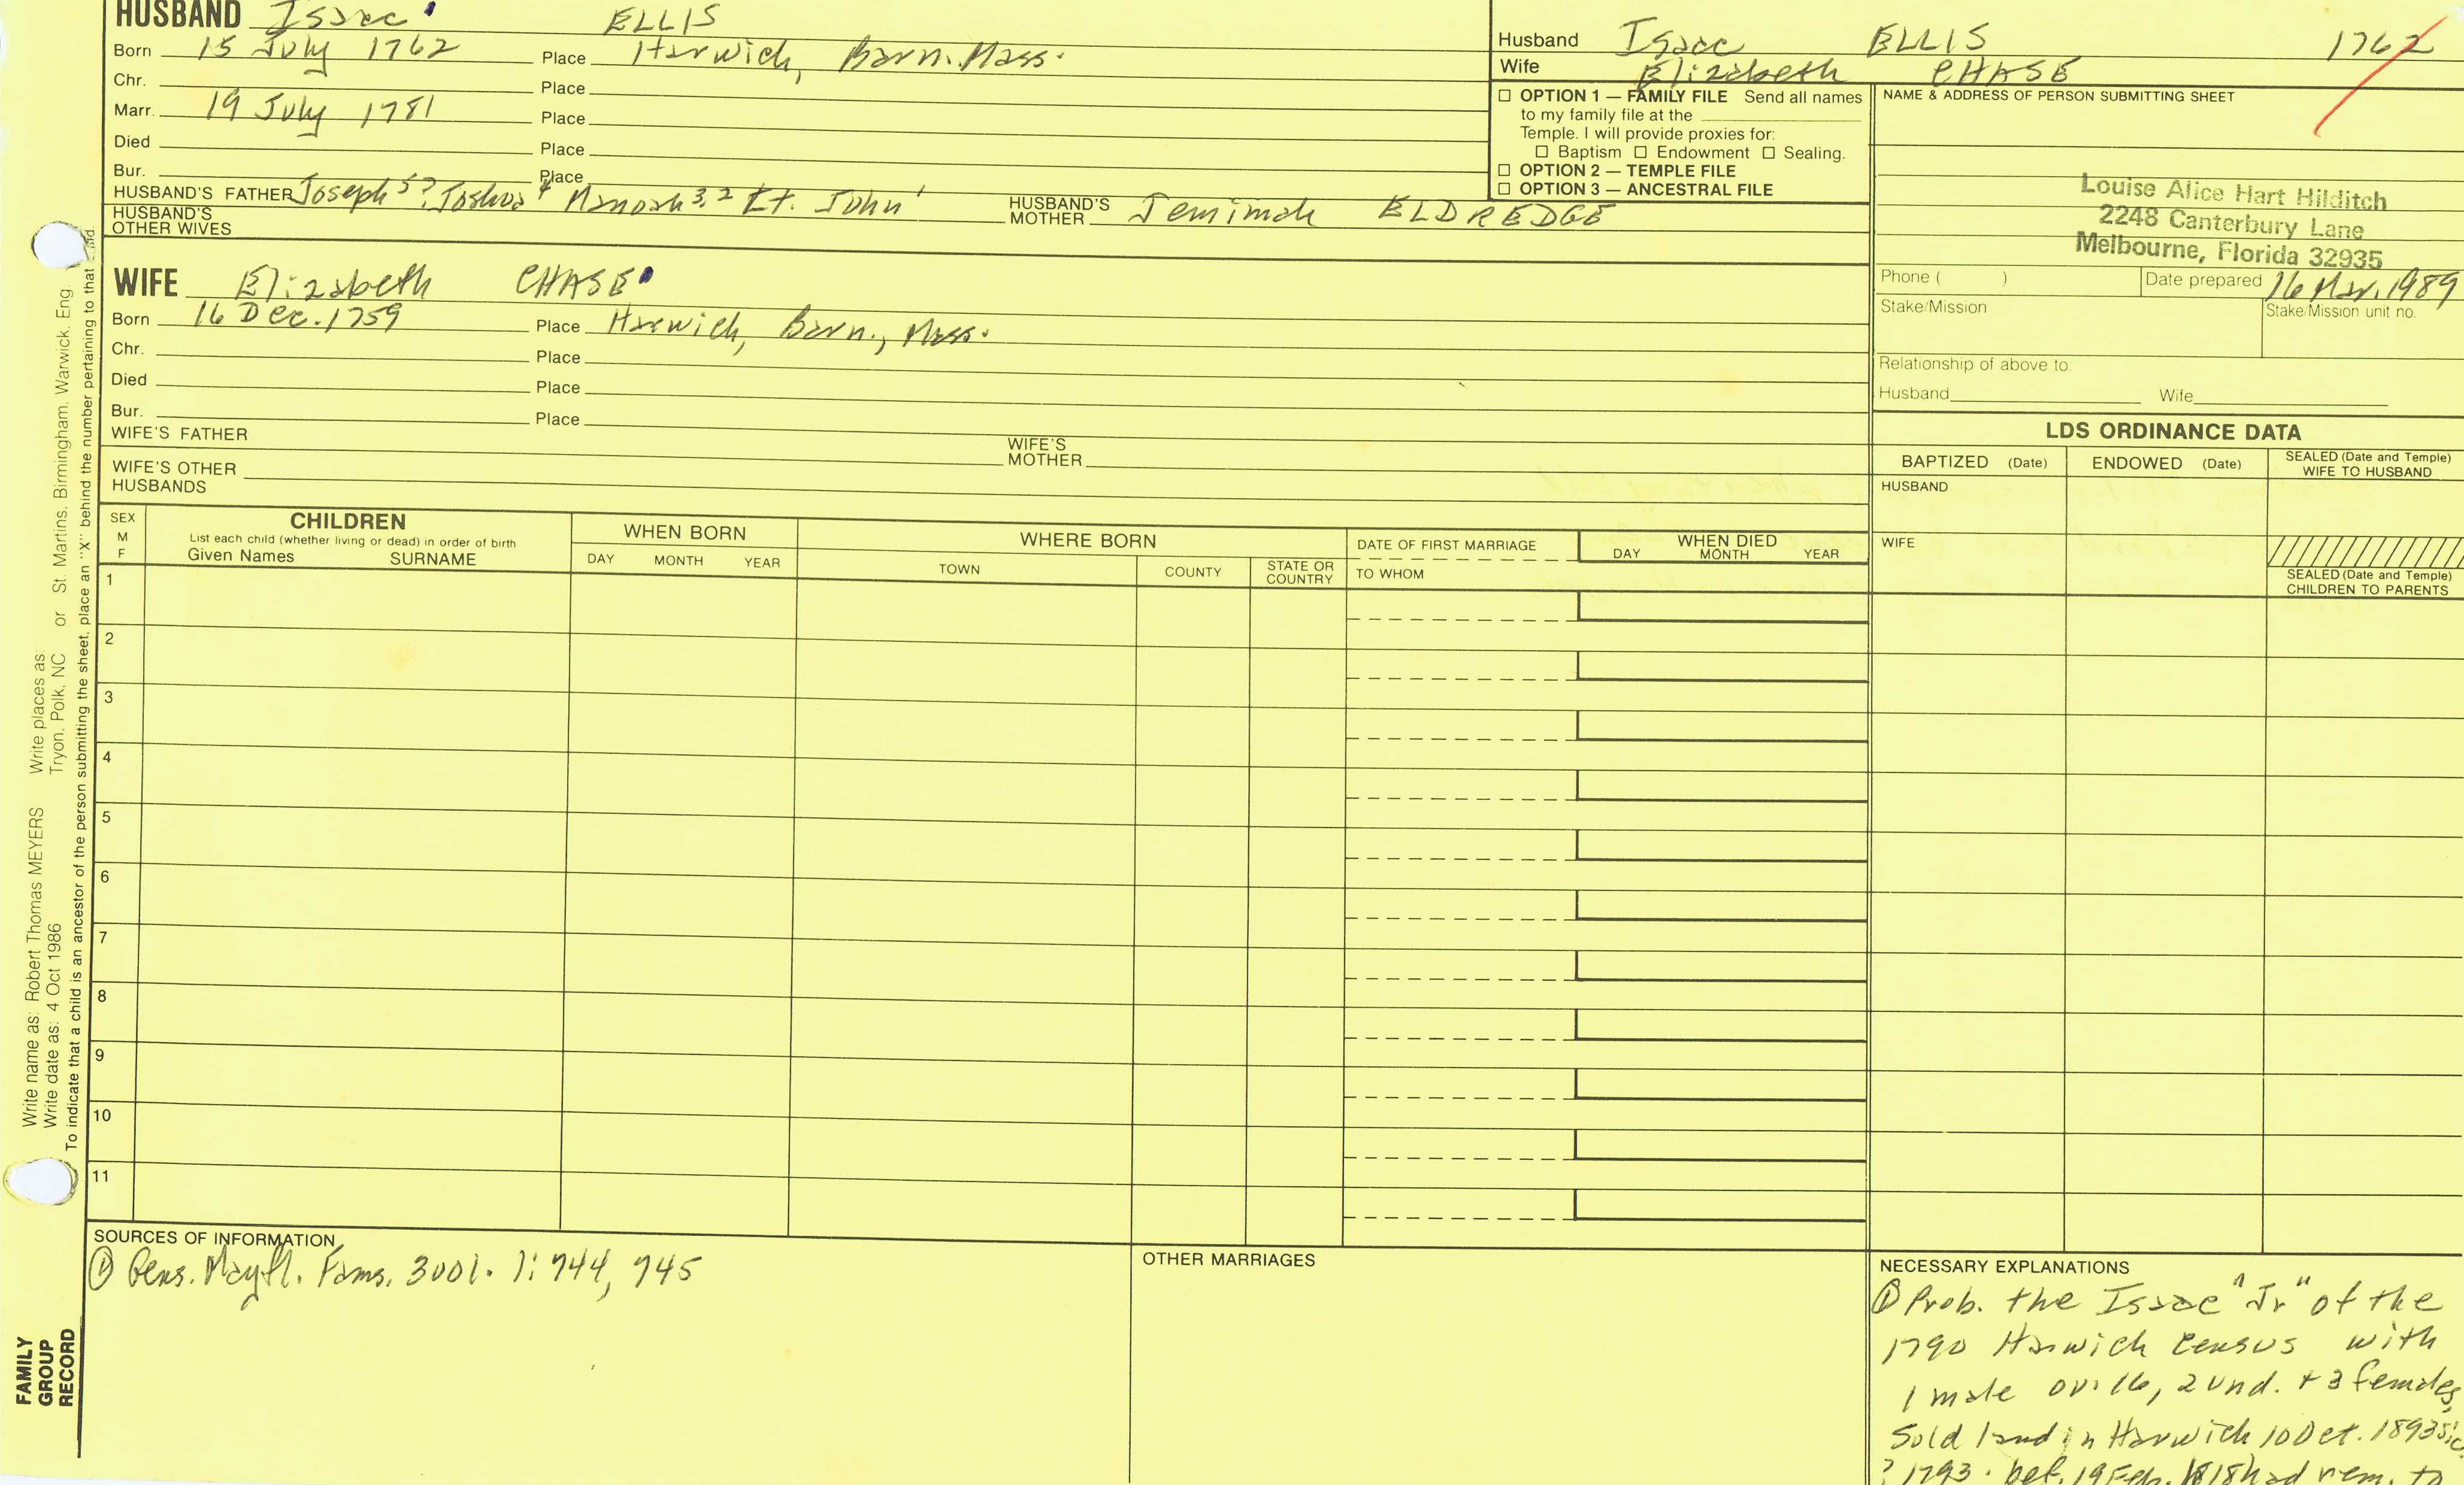 HUSBAND Isaac ELLIS
Born 15 July 1762 Place Harwich, Barn. Mass.
Chr. Place
Marr. 19 July 1781 Place
Died Place
Bur. Place
HUSBAND'S FATHER Joseph 5? Joshua 4 Manoah 3, 2 Lt. John 1 HUSBAND'S MOTHER Jemimah ELDREDGE
HUSBAND'S OTHER WIVES
Husband Isaac ELLIS 1762
Wife Elizabeth CHASE
☐ OPTION 1 — FAMILY FILE Send all names
to my family file at the
Temple. I will provide proxies for:
☐ Baptism ☐ Endowment ☐ Sealing.
☐ OPTION 2 — TEMPLE FILE
☐ OPTION 3 — ANCESTRAL FILE
NAME & ADDRESS OF PERSON SUBMITTING SHEET
Louise Alice Hart Hilditch
2248 Canterbury Lane
Melbourne, Florida 32935
Phone ( ) Date prepared 16 Mar. 1989
Stake/Mission Stake/Mission unit no.
Relationship of above to
Husband Wife
WIFE Elizabeth CHASE
Born 16 Dec. 1759 Place Harwich, Barn., Mass.
Chr. Place
Died Place
Bur. Place
WIFE'S FATHER WIFE'S MOTHER
WIFE'S OTHER HUSBANDS
LDS ORDINANCE DATA
BAPTIZED (Date) ENDOWED (Date) SEALED (Date and Temple) WIFE TO HUSBAND
HUSBAND
WIFE
SEALED (Date and Temple) CHILDREN TO PARENTS
SEX M F
CHILDREN
List each child (whether living or dead) in order of birth
Given Names SURNAME
WHEN BORN
DAY MONTH YEAR
WHERE BORN
TOWN COUNTY STATE OR COUNTRY
DATE OF FIRST MARRIAGE
TO WHOM
WHEN DIED
DAY MONTH YEAR
1
2
3
4
5
6
7
8
9
10
11
SOURCES OF INFORMATION
① Gens. Mayfl. Fams. 3vol. 1: 744, 745
OTHER MARRIAGES
NECESSARY EXPLANATIONS
① Prob. the Isaac "Jr" of the
1790 Harwich census with
1 male ov. 16, 2 und. + 3 females,
Sold land in Harwich 10 Oct. 1893 sic.
? 1793. bef. 19 Feb. 1818 had rem. to
Write name as: Robert Thomas MEYERS Write places as:
Write date as: 4 Oct 1986 Tryon, Polk, NC or St. Martins, Birmingham, Warwick, Eng
To indicate that a child is an ancestor of the person submitting the sheet, place an "X" behind the number pertaining to that
FAMILY
GROUP
RECORD